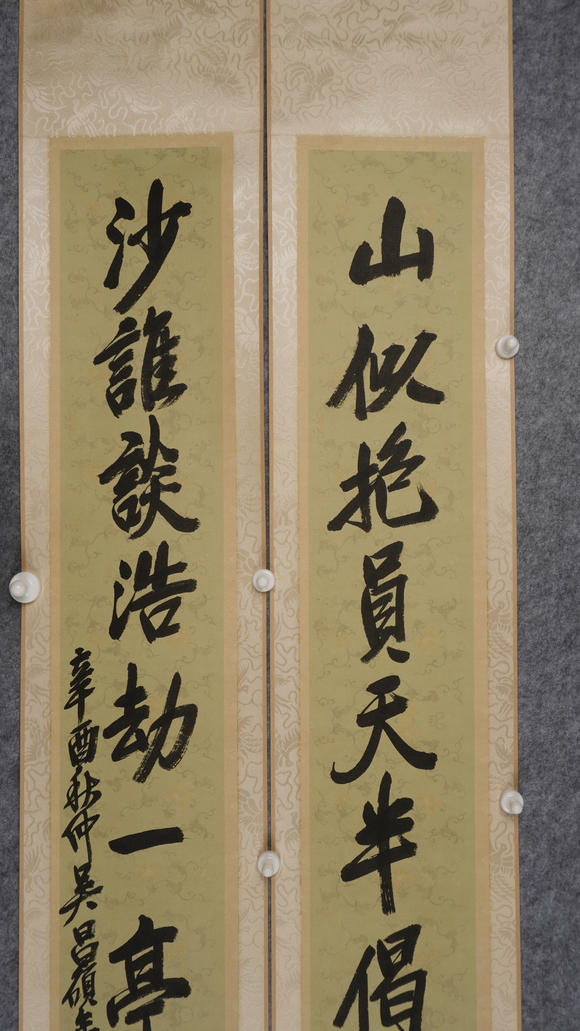 山似抱員天半偈
沙誰談浩劫一亭
辛酉秋仲吳昌碩